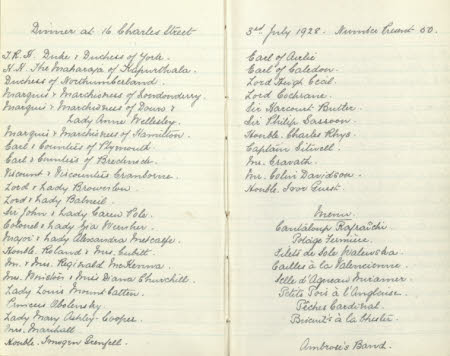 Dinner at 16 Charles Street
T.R.H. Duke & Duchess of York.
H.H. The Maharaja of Kapurthala.
Duchess of Northumberland.
Marquis & Marchioness of Londonderry.
Marquis & Marchioness of Downs &
Lady Anne Wellesley.
Marquis & Marchioness of Hamilton.
Earl & Countess of Plymouth.
Earl & Countess of Brecknock.
Viscount & Viscountess Cranborne.
Lord & Lady Brownlow.
Lord & Lady Balniel.
Sir John & Lady Carew Pole.
Colonel & Lady Zia Wernher.
Major & Lady Alexandra Metcalfe.
Honble. Roland & Mrs. Cubitt.
Mr. & Mrs. Reginald McKenna.
Mrs. Winston & Miss Diana Churchill.
Lady Louis Mountbatten.
Princess Obolensky.
Lady Mary Ashley-Cooper.
Mrs. Marshall.
Honble. Imogen Grenfell.
3rd. July 1928. Number Present 50.
Earl of Airlie.
Earl of Caledon.
Lord Hugh Cecil.
Lord Cochrane.
Sir Harcourt Butler.
Sir Philip Sassoon.
Honble. Charles Rhys.
Captain Sitwell.
Mr. Cravath.
Mr. Colin Davidson.
Honble. Ivor Guest.
Menu
Cantaloup Rafraîchi
Potage Fermière.
Filets de Sole Walewska.
Cailles à la Valencienne.
Selle d'Agneau Miramar.
Petits Pois à l'Anglaise.
Pêches Cardinal
Biscuits à la Chester.
Ambrose's Band.